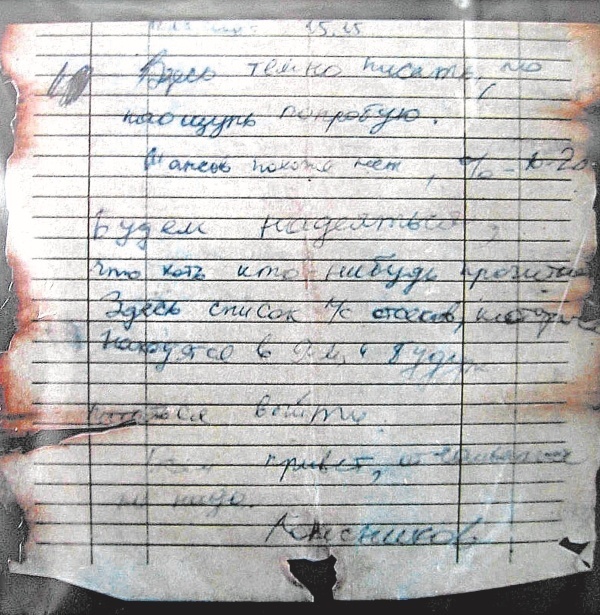 15.15
Здесь темно писать, но
наощупь попробую.
Шансов похоже нет, % - 10-20
Будем надеяться,
что хоть кто-нибудь прочитает
Здесь список л/с отсеков, которые
находятся в 9-м и будут
пытаться выйти.
Всем привет, отчаиваться
не надо.
Колесников.